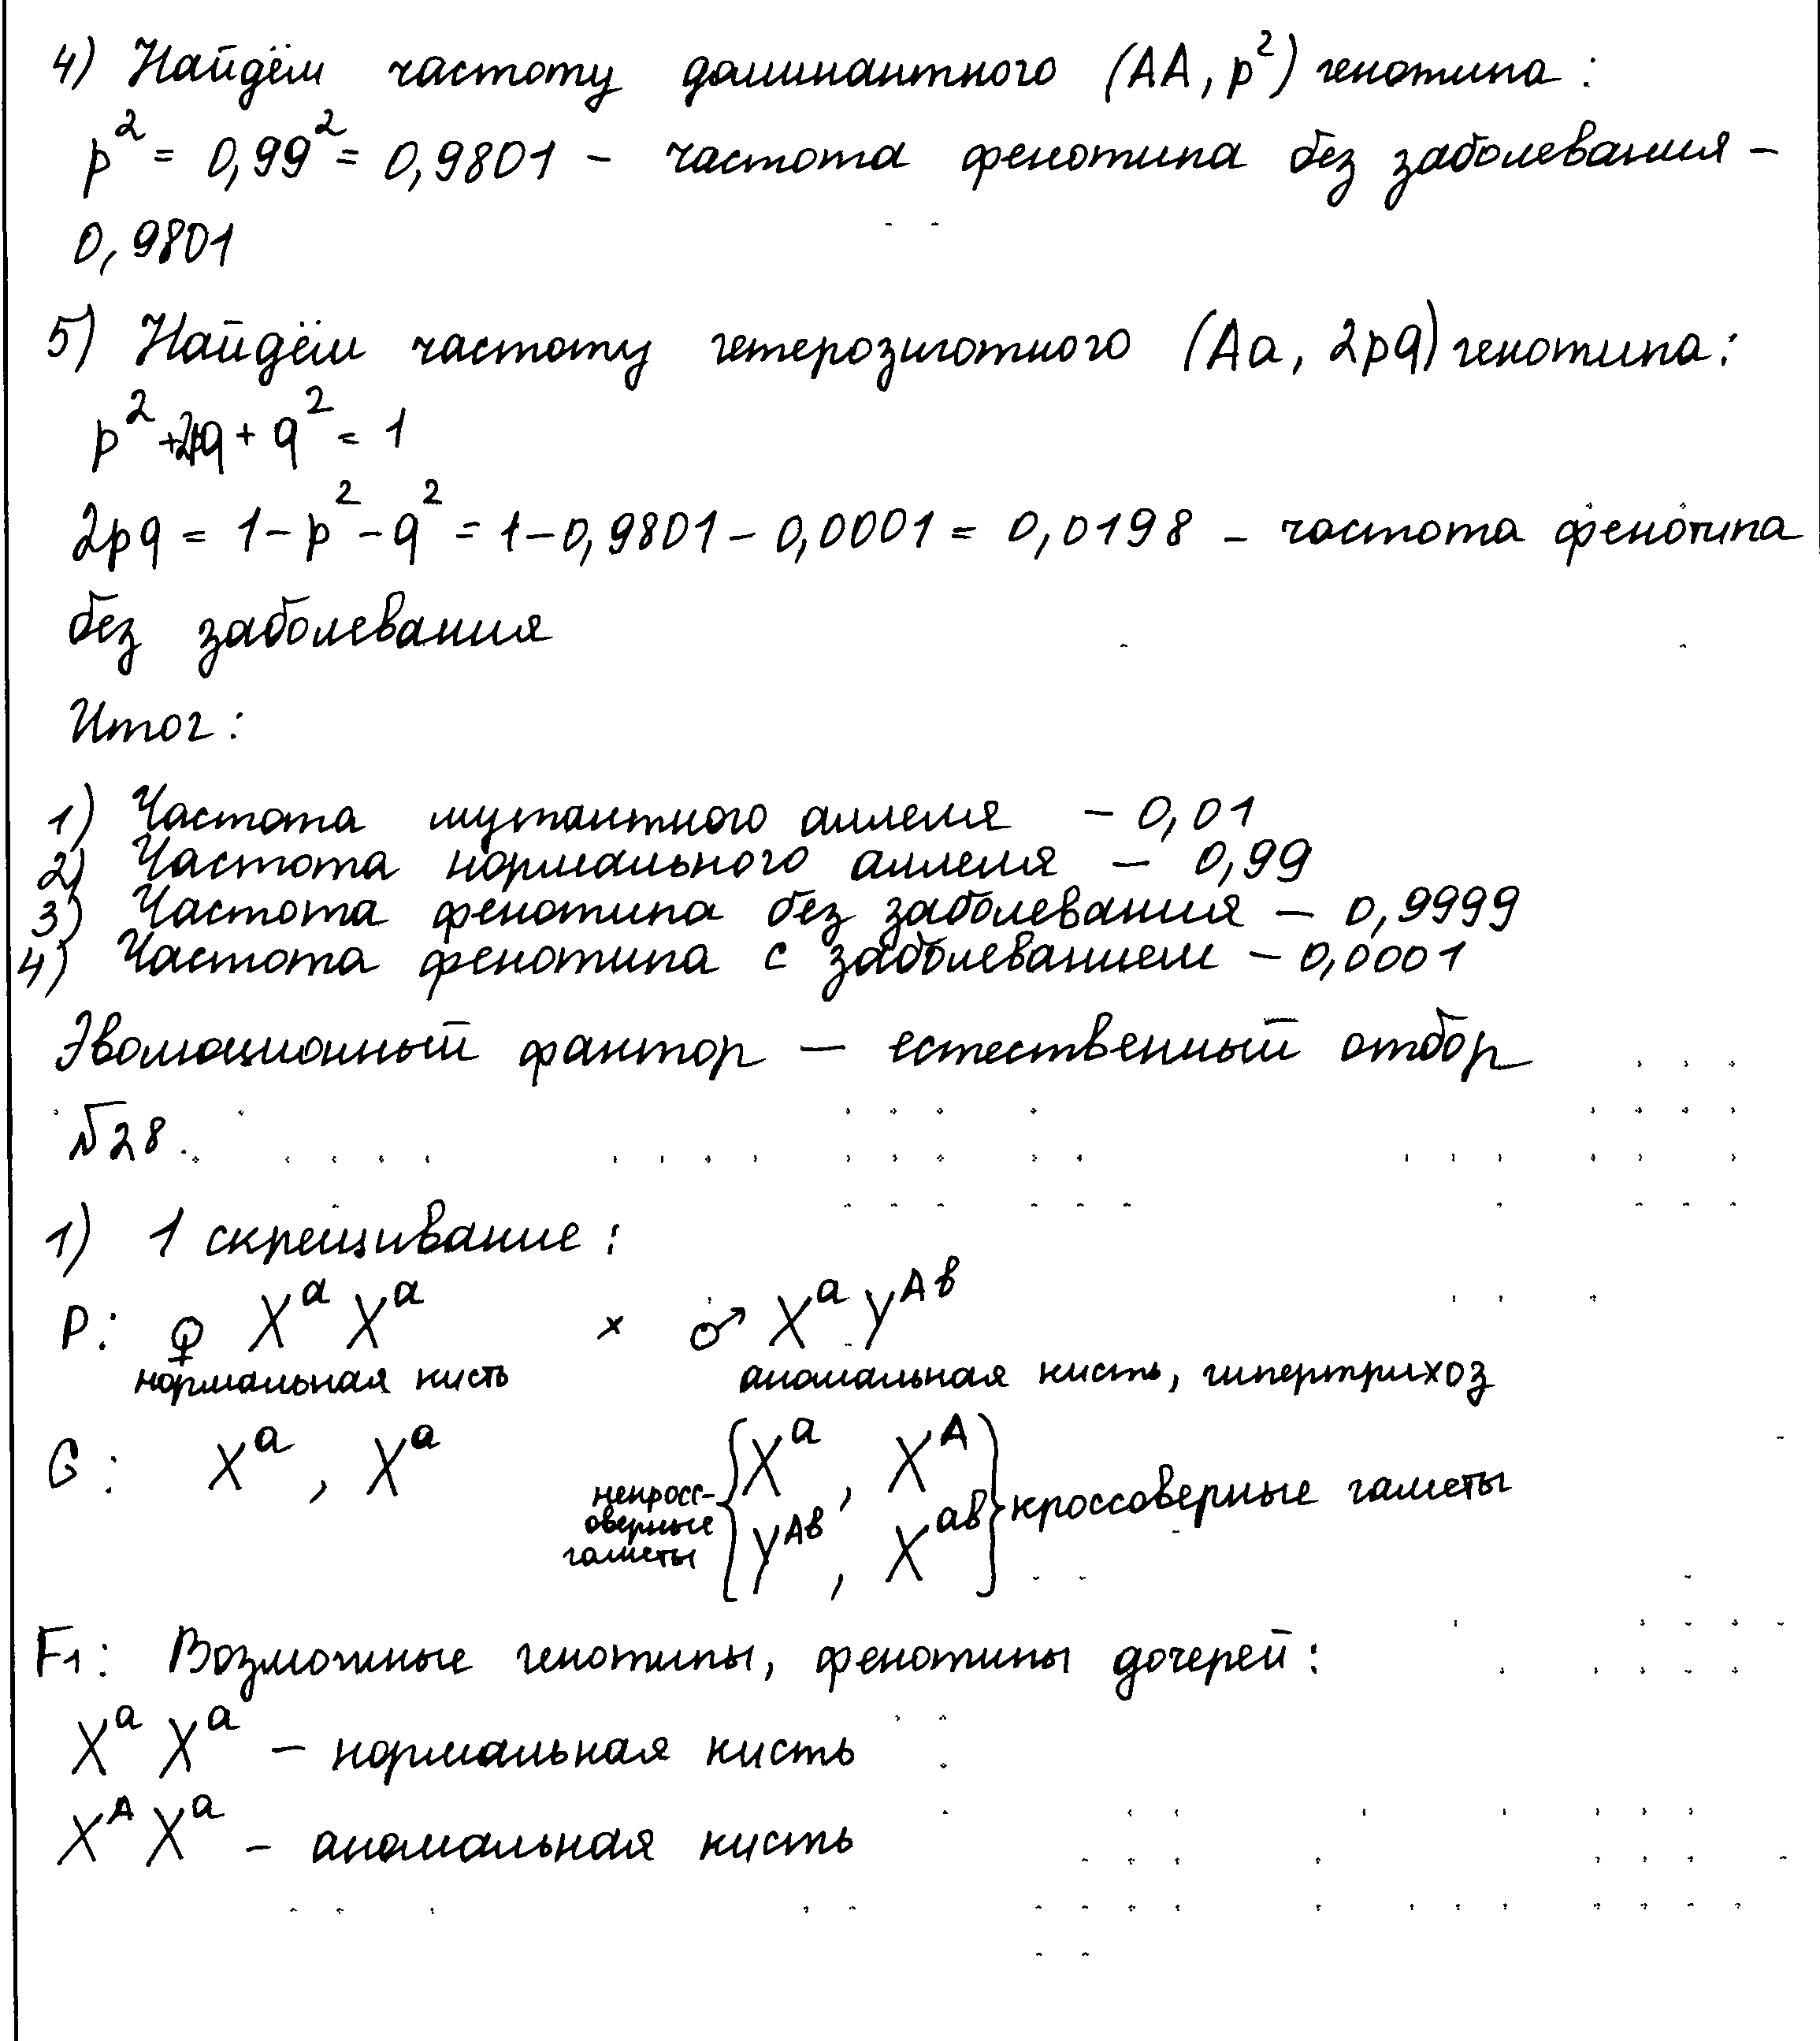 4) Найдём частоту доминантного (АА, p²) генотипа:
p² = 0,99² = 0,9801 – частота фенотипа без заболевания –
0,9801
5) Найдём частоту гетерозиготного (Аа, 2pq) генотипа:
p² + 2pq + q² = 1
2pq = 1 – p² – q² = 1 – 0,9801 – 0,0001 = 0,0198 – частота фенотипа
без заболевания
Итог:
1) Частота мутантного аллеля – 0,01
2) Частота нормального аллеля – 0,99
3) Частота фенотипа без заболевания – 0,9999
4) Частота фенотипа с заболеванием – 0,0001
Эволюционный фактор – естественный отбор
№28.
1) 1 скрещивание:
P: ♀ Xᵃ Xᵃ × ♂ Xᵃ Yᴬᵇ
нормальная кисть аномальная кисть, гипертрихоз
G: Xᵃ, Xᵃ некросс-оверные гаметы { Xᵃ, Xᴬ
Yᴬᵇ, Xᵃᵇ } кроссоверные гаметы
F1: Возможные генотипы, фенотипы дочерей:
Xᵃ Xᵃ – нормальная кисть
Xᴬ Xᵃ – аномальная кисть